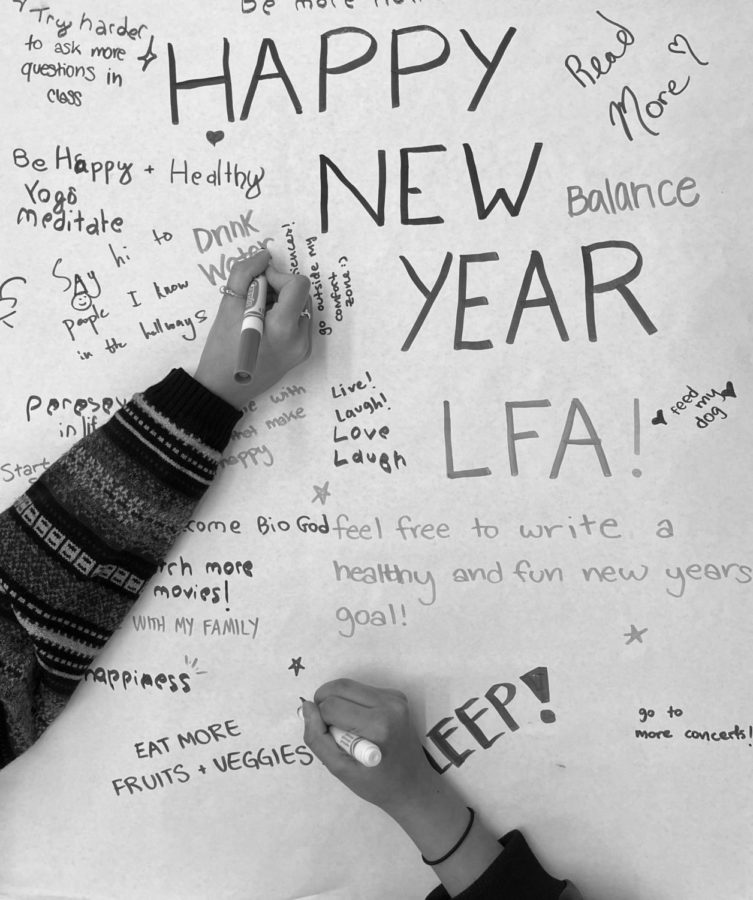 Be more
Try harder
to ask more
questions in
class
HAPPY
NEW
YEAR
LFA!
Read
More
Balance
Be Happy + Healthy
Yoga
meditate
Say hi to
people I know
in the hallways
Drink
Water
go outside my
comfort
zone :)
feed
my
dog
Live!
Laugh!
Love
Laugh
in
with
not make
happy
Start
Bio God
feel free to write a
healthy and fun new years
goal!
more
movies!
WITH MY FAMILY
happiness
EAT MORE
FRUITS + VEGGIES
go to
more concerts!